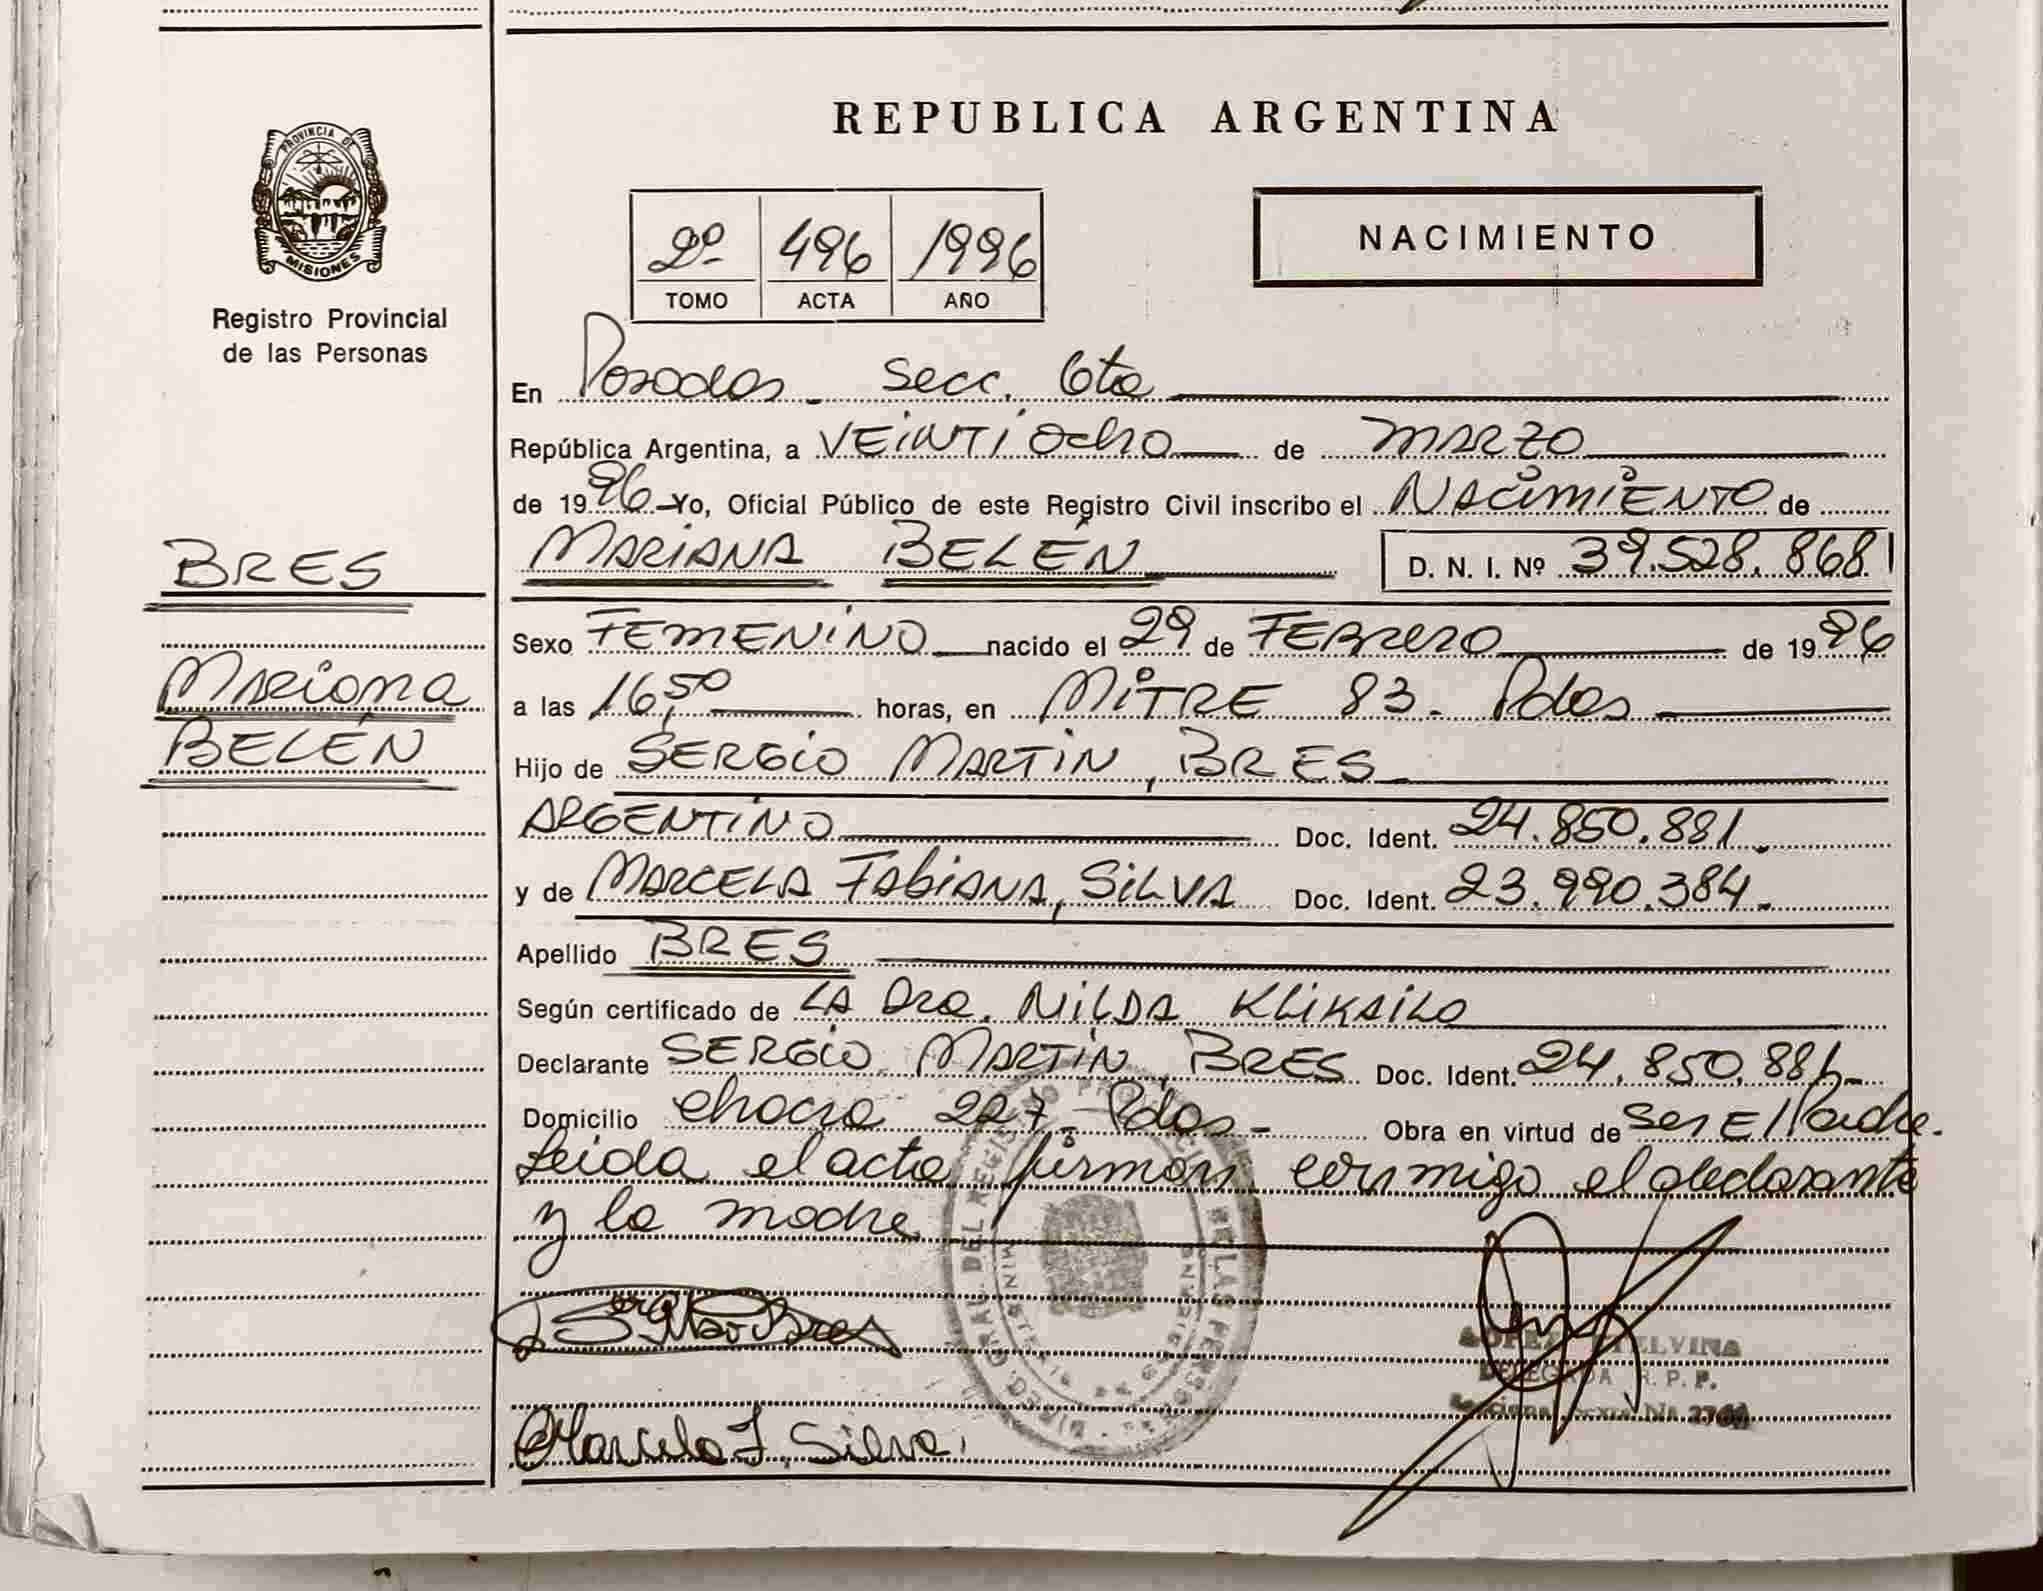 REPUBLICA ARGENTINA
PROVINCIA DE
MISIONES
Registro Provincial
de las Personas
2º 496 1996
TOMO ACTA AÑO
NACIMIENTO
En Posadas - Secc. 6ta
República Argentina, a VEINTIOcho de MARZO
de 1996 Yo, Oficial Público de este Registro Civil inscribo el NACIMIENTO de
BRES
MARIANA BELÉN D. N. I. Nº 39.528.868
Sexo FEMENINO nacido el 29 de FEBRERO de 1996
Mariana
a las 16,50 horas, en MITRE 83. Pdas
BELÉN
Hijo de SERGIO MARTIN, BRES
ARGENTINO Doc. Ident. 24.850.881.
y de MARCELA FABIANA, SILVA Doc. Ident. 23.990.384.
Apellido BRES
Según certificado de LA Dra. NILDA KLIKAILO
Declarante SERGIO MARTÍN BRES Doc. Ident. 24.850.881-
Domicilio chacra 227- Pdas- Obra en virtud de ser El Padre.
Leida el acta firman conmigo el declarante
y la madre
DIREC. GRAL. DEL REGISTRO PROVINCIAL DE LAS PERSONAS
MISIONES
Serg Mar Bres
LOPEZ ETELVINA
DELEGADA R. P. P.
Marcela F. Silva